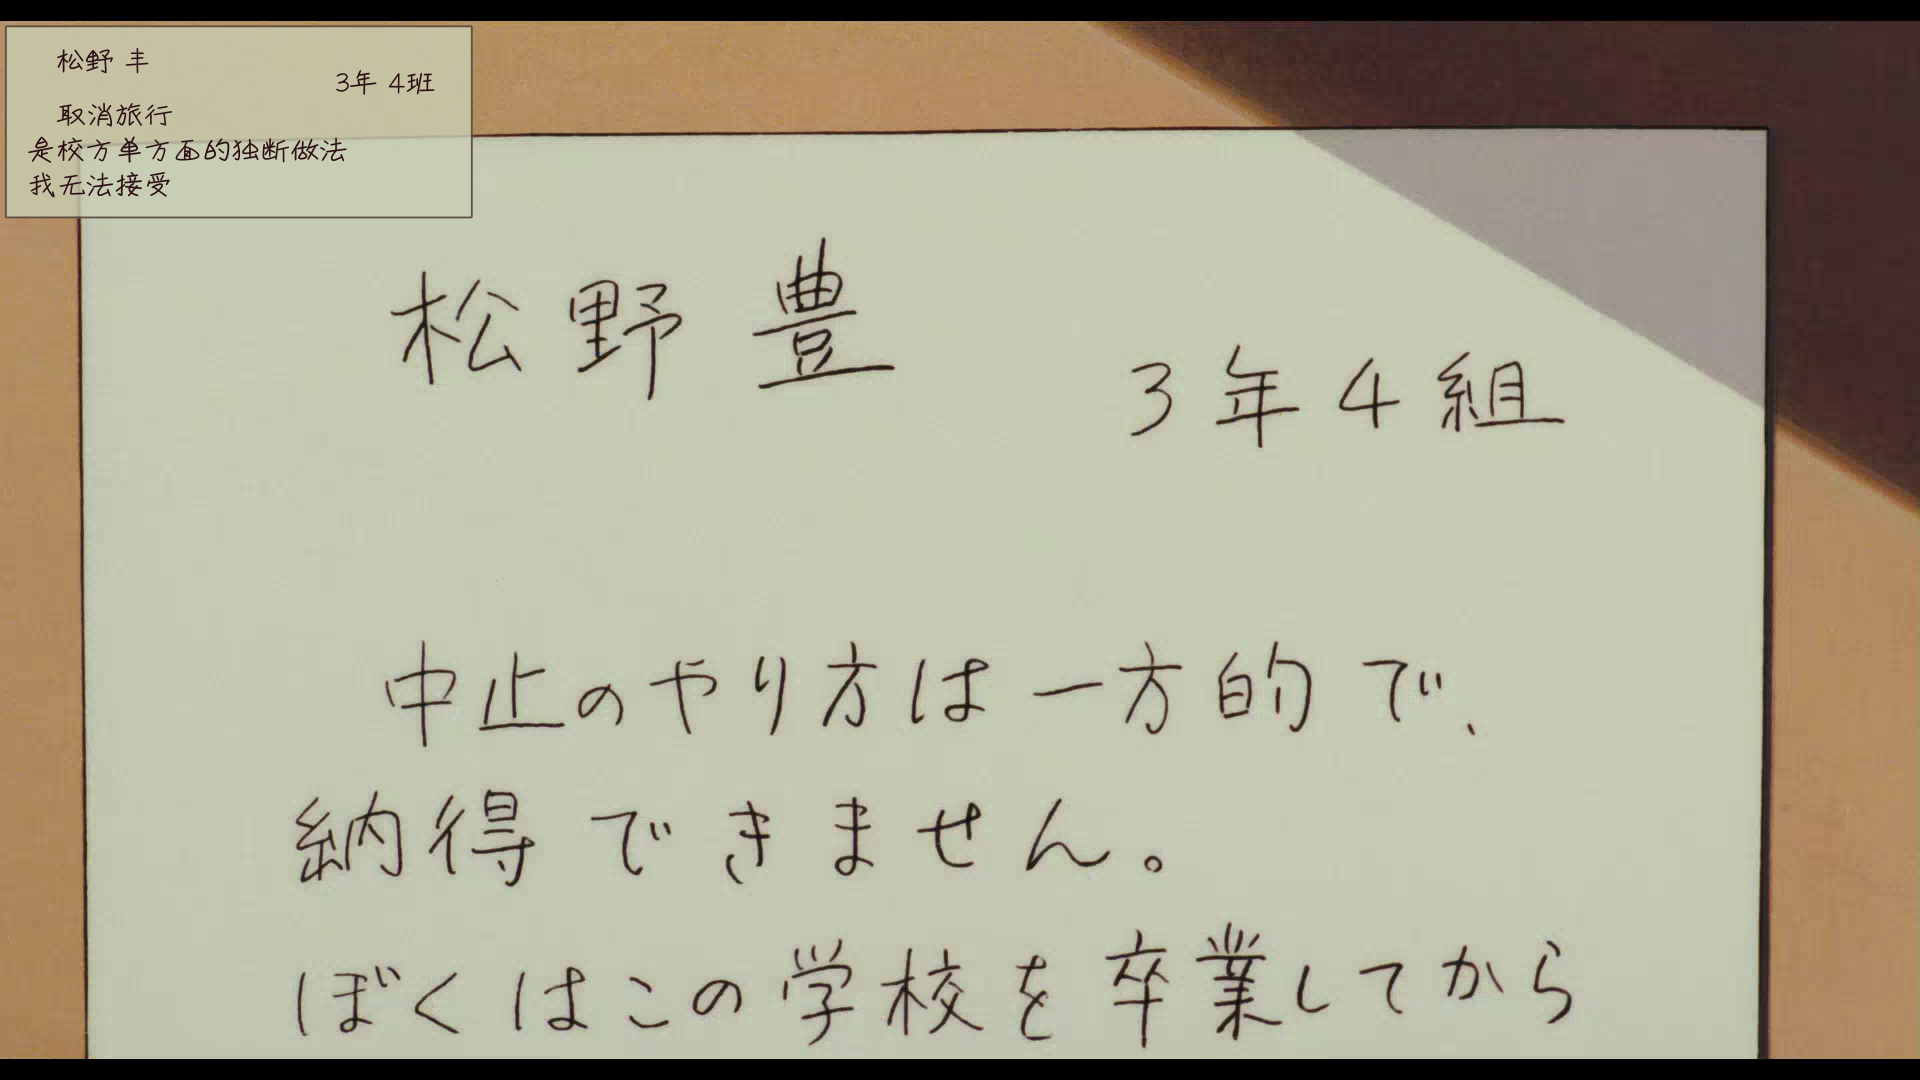 松野 丰
3年 4班
取消旅行
是校方单方面的独断做法
我无法接受
松野豊
3年4組
中止のやり方は一方的で、
納得できません。
ぼくはこの学校を卒業してから